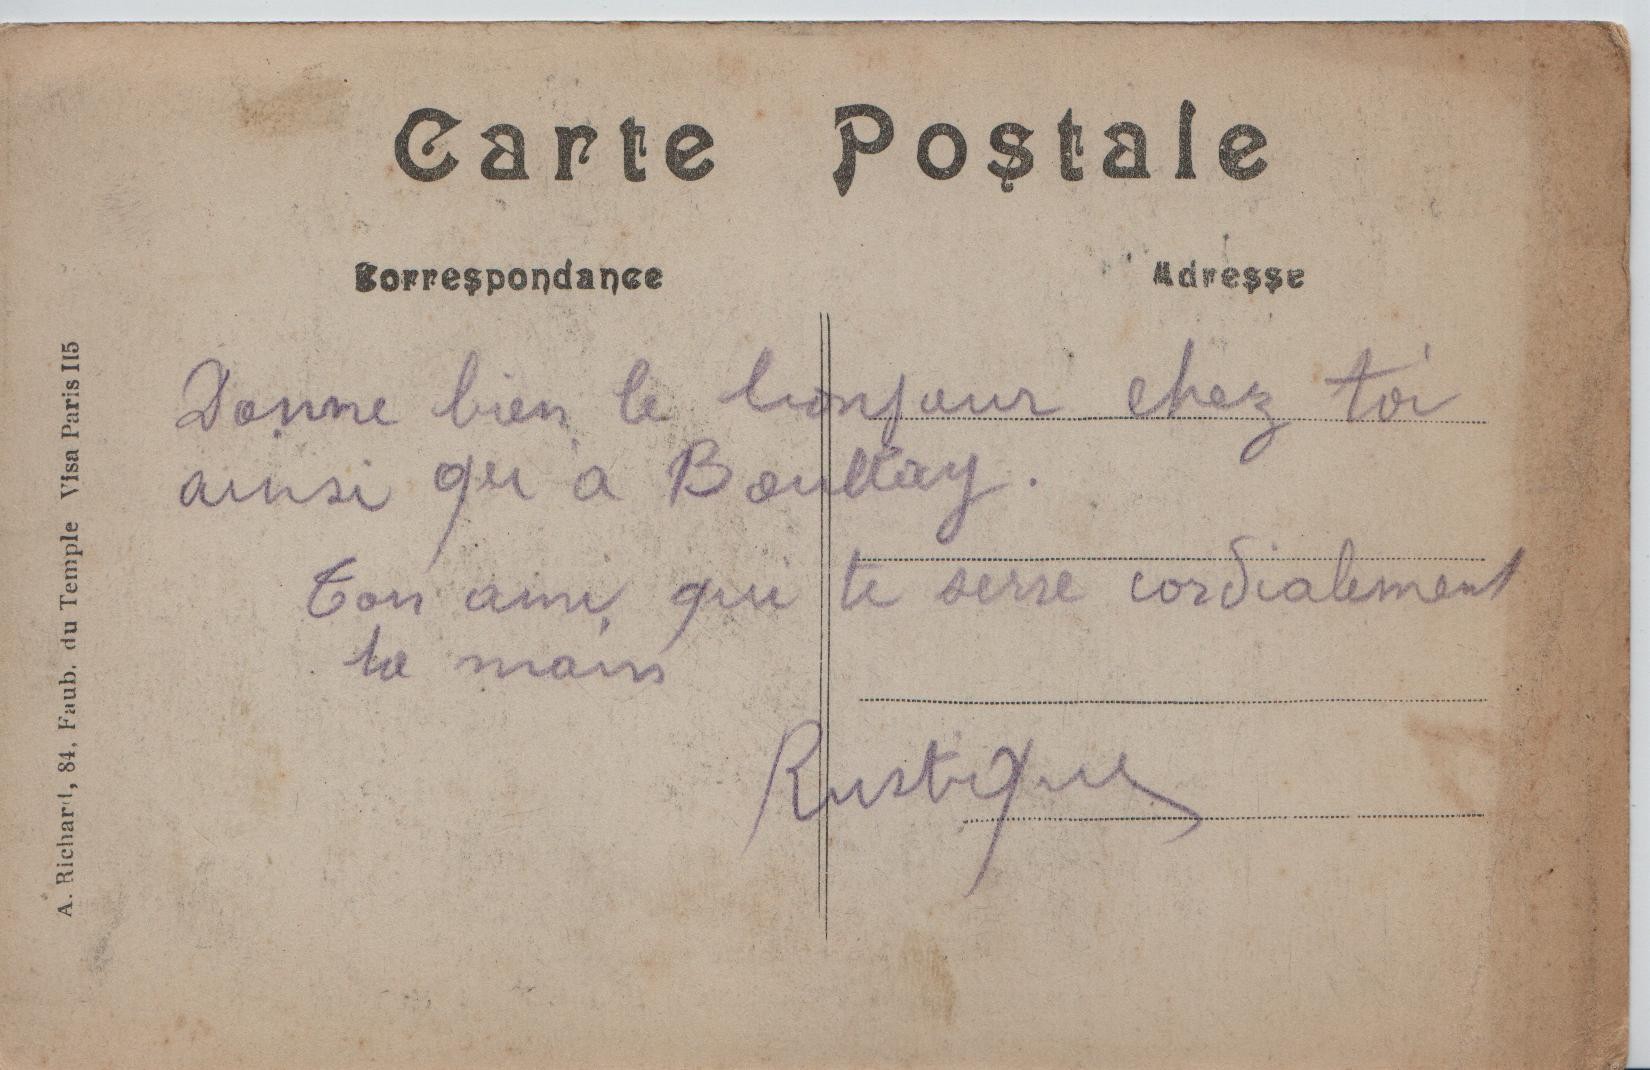 Carte Postale
Correspondance
Adresse
Donne bien le bonjour chez toi
ainsi qu'a Boultay.
Ton ami qui te serre cordialement
la main
Rustique
A. Richard, 84, Faub. du Temple Visa Paris 115